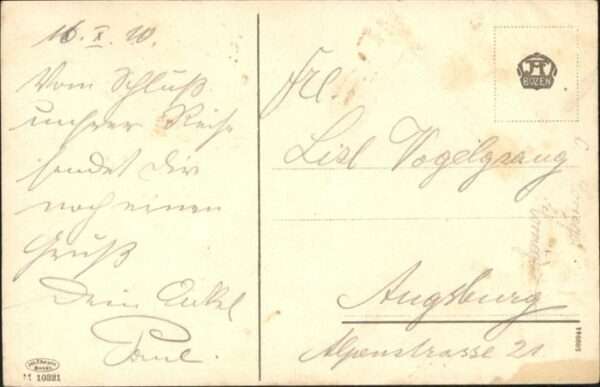 16. X. 10.
Vom Schluß
unsrer Reise
sendet Dir
noch einen
Gruß
Dein Onkel
Paul.
M 10321
Frl.
Lisl Vogelgsang
Augsburg
Alpenstrasse 21
BOZEN